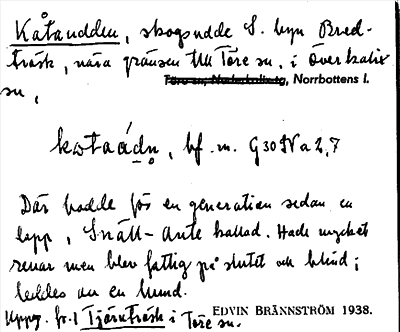 Kåtaudden, skogsudde S. byn Bred-
träsk, nära gränsen till Töre sn, i Överkalix
Töre sn, Nederkalix tg, Norrbottens l.
sn,
kωtaádn, bf. m. G30 SV a 2,7
Där hadde för en generation sedan en
lapp, Snäll-Ante kallad. Hade mycket
renar men blev fattig på slutet och blind;
leddes av en hund.
Uppg. fr. Tjärnträsk i Töre sn.
EDVIN BRÄNNSTRÖM 1938.